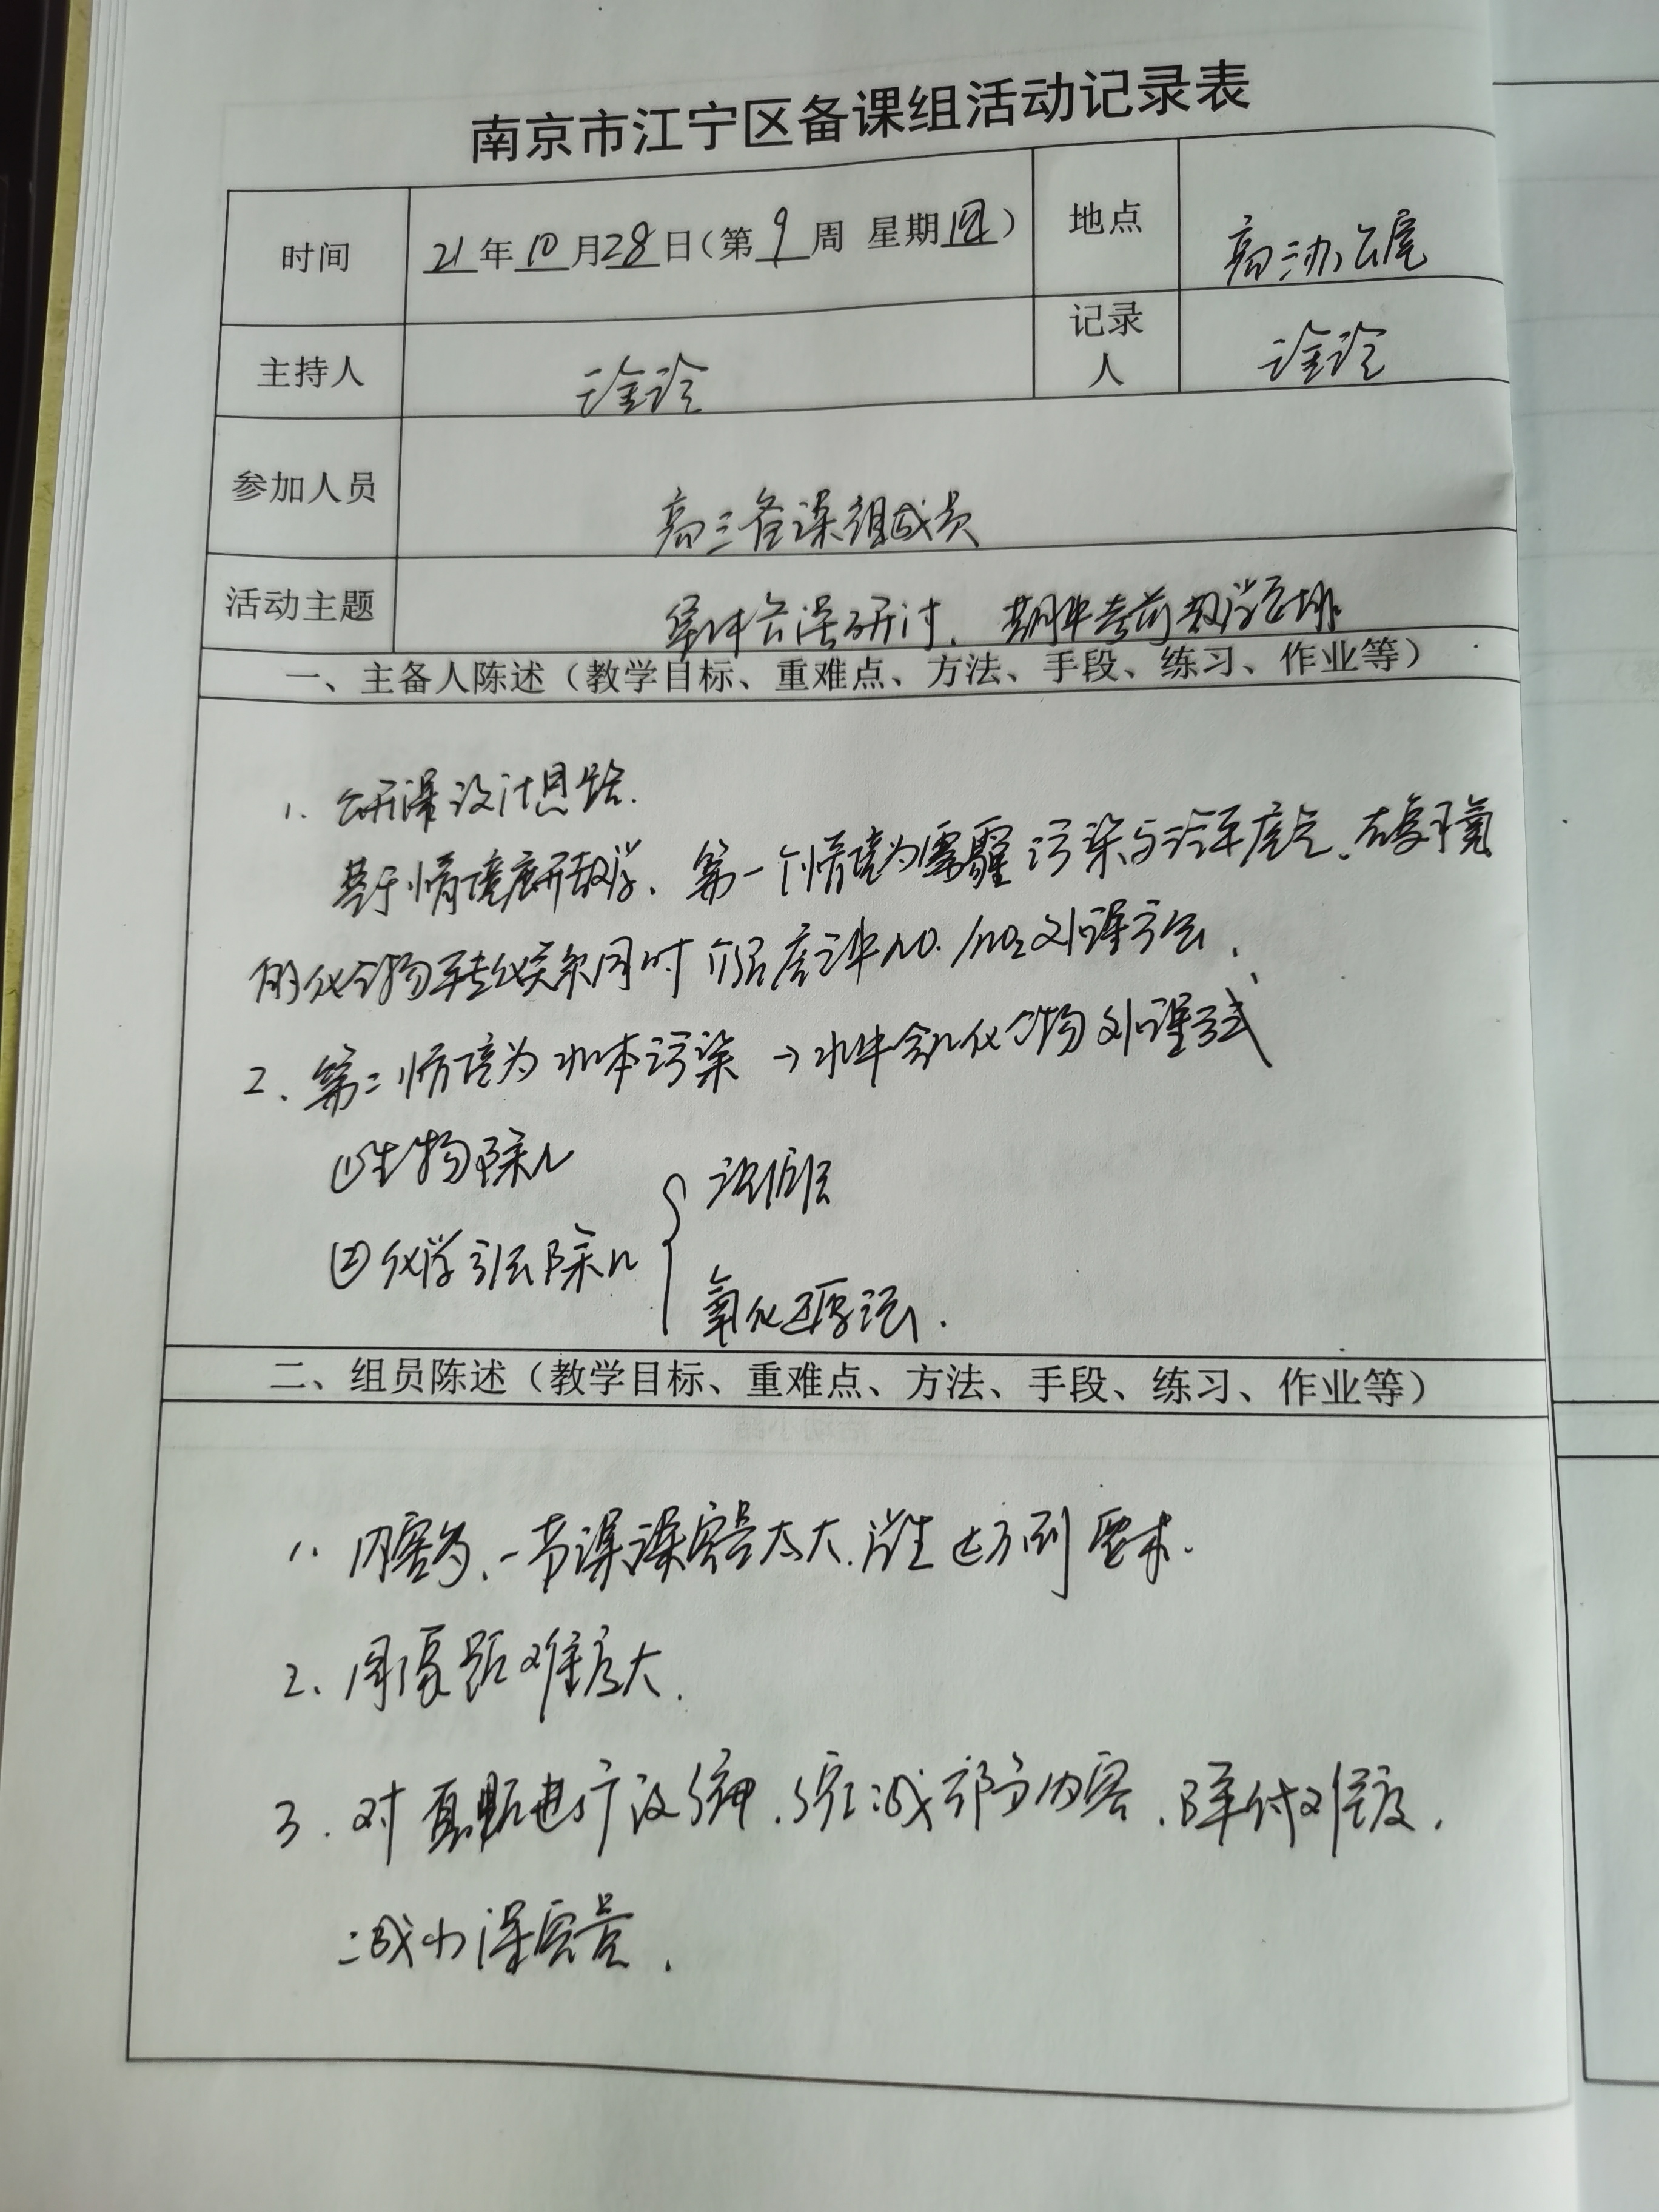 南京市江宁区备课组活动记录表
时间 21年10月28日(第9周 星期四) 地点 高三办公室
主持人 记录人
参加人员 高三备课组成员
活动主题 集体公开课研讨、期中考前教学安排
一、主备人陈述（教学目标、重难点、方法、手段、练习、作业等）
1. 公开课设计思路.
基于情境展开教学. 第一个情境为雾霾污染与汽车尾气.在复习氮
的化合物转化关系同时介绍尾气中NO. NO₂处理方法.
2、第二情境为水体污染 → 水中含N化合物处理方式
①生物除N
②化学方法除N
沉淀法
氧化还原法.
二、组员陈述（教学目标、重难点、方法、手段、练习、作业等）
1. 内容多、一节课课容量太大.学生达不到要求.
2、问题难度大.
3. 对真题进行设计.缩减部分内容.降低难度.
减小课容量.